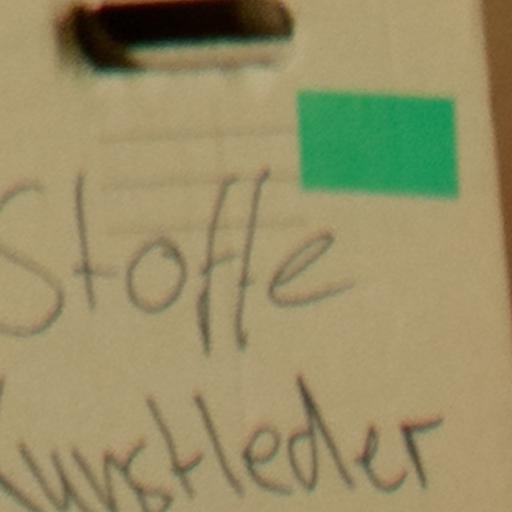 Stoffe
Kunstleder